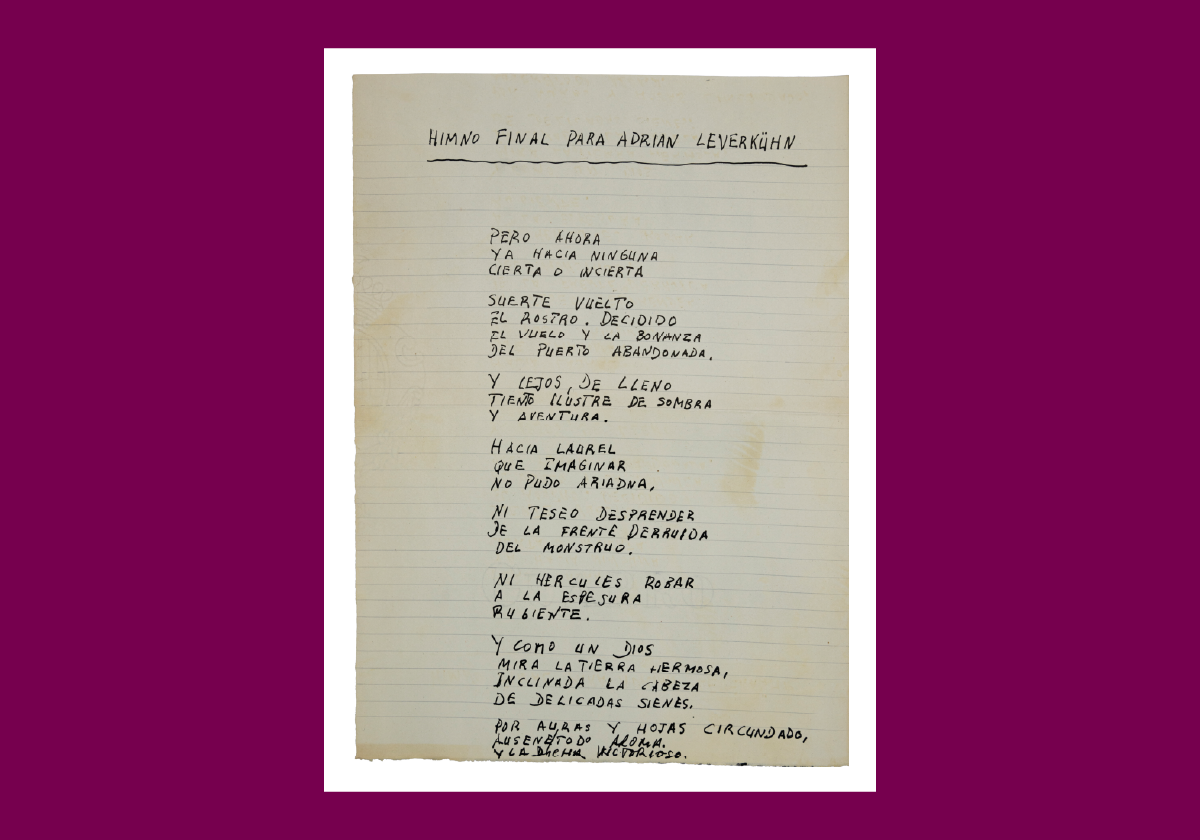 HIMNO FINAL PARA ADRIAN LEVERKÜHN
PERO AHORA
YA HACIA NINGUNA
CIERTA O INCIERTA
SUERTE VUELTO
EL ROSTRO. DECIDIDO
EL VUELO Y LA BONANZA
DEL PUERTO ABANDONADA.
Y LEJOS, DE LLENO
TIENTO ILUSTRE DE SOMBRA
Y AVENTURA.
HACIA LAUREL
QUE IMAGINAR
NO PUDO ARIADNA,
NI TESEO DESPRENDER
DE LA FRENTE DERRUIDA
DEL MONSTRUO.
NI HERCULES ROBAR
A LA ESPESURA
RUGIENTE.
Y COMO UN DIOS
MIRA LA TIERRA HERMOSA,
INCLINADA LA CABEZA
DE DELICADAS SIENES.
POR AURAS Y HOJAS CIRCUNDADO,
AUSENTE TODO AROMA.
Y LA DICHA VICTORIOSO.